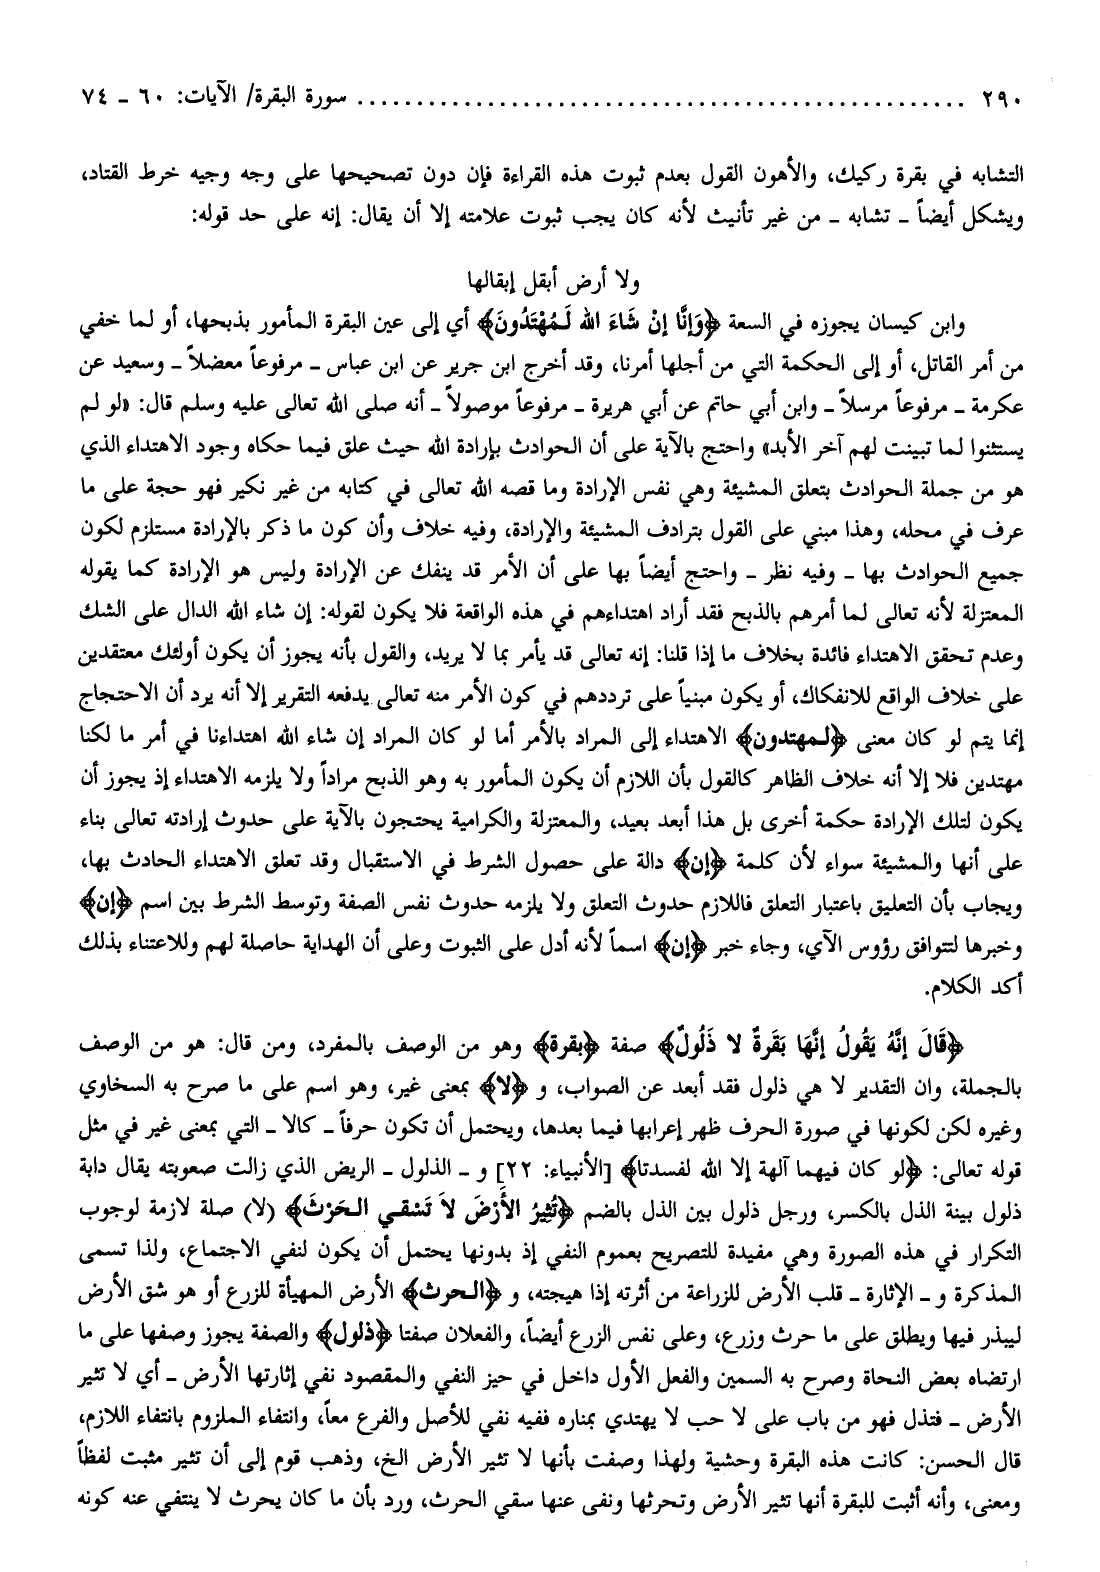 ٢٩٠ ........................................................ سورة البقرة/ الآيات: ٦٠ ـ ٧٤
التشابه في بقرة ركيك، والأهون القول بعدم ثبوت هذه القراءة فإن دون تصحيحها على وجه وجيه خرط القتاد،
ويشكل أيضاً ـ تشابه ـ من غير تأنيث لأنه كان يجب ثبوت علامته إلا أن يقال: إنه على حد قوله:
ولا أرض أبقل إبقالها
وابن كيسان يجوزه في السعة ﴿وَإِنَّا إنْ شَاءَ الله لَـمُهْتَدُونَ﴾ أي إلى عين البقرة المأمور بذبحها، أو لما خفي
من أمر القاتل، أو إلى الحكمة التي من أجلها أمرنا، وقد أخرج ابن جرير عن ابن عباس ـ مرفوعاً معضلاً ـ وسعيد عن
عكرمة ـ مرفوعاً مرسلاً ـ وابن أبي حاتم عن أبي هريرة ـ مرفوعاً موصولاً ـ أنه صلى الله تعالى عليه وسلم قال: «لو لم
يستثنوا لما تبينت لهم آخر الأبد» واحتج بالآية على أن الحوادث بإرادة الله حيث علق فيما حكاه وجود الاهتداء الذي
هو من جملة الحوادث بتعلق المشيئة وهي نفس الإرادة وما قصه الله تعالى في كتابه من غير نكير فهو حجة على ما
عرف في محله، وهذا مبني على القول بترادف المشيئة والإرادة، وفيه خلاف وأن كون ما ذكر بالإرادة مستلزم لكون
جميع الحوادث بها ـ وفيه نظر ـ واحتج أيضاً بها على أن الأمر قد ينفك عن الإرادة وليس هو الإرادة كما يقوله
المعتزلة لأنه تعالى لما أمرهم بالذبح فقد أراد اهتداءهم في هذه الواقعة فلا يكون لقوله: إن شاء الله الدال على الشك
وعدم تحقق الاهتداء فائدة بخلاف ما إذا قلنا: إنه تعالى قد يأمر بما لا يريد، والقول بأنه يجوز أن يكون أولئك معتقدين
على خلاف الواقع للانفكاك، أو يكون مبنياً على ترددهم في كون الأمر منه تعالى يدفعه التقرير إلا أنه يرد أن الاحتجاج
إنما يتم لو كان معنى ﴿لـمهتدون﴾ الاهتداء إلى المراد بالأمر أما لو كان المراد إن شاء الله اهتداءنا في أمر ما لكنا
مهتدين فلا إلا أنه خلاف الظاهر كالقول بأن اللازم أن يكون المأمور به وهو الذبح مراداً ولا يلزمه الاهتداء إذ يجوز أن
يكون لتلك الإرادة حكمة أخرى بل هذا أبعد بعيد، والمعتزلة والكرامية يحتجون بالآية على حدوث إرادته تعالى بناء
على أنها والمشيئة سواء لأن كلمة ﴿إن﴾ دالة على حصول الشرط في الاستقبال وقد تعلق الاهتداء الحادث بها،
ويجاب بأن التعليق باعتبار التعلق فاللازم حدوث التعلق ولا يلزمه حدوث نفس الصفة وتوسط الشرط بين اسم ﴿إن﴾
وخبرها لتتوافق رؤوس الآي، وجاء خبر ﴿إن﴾ اسماً لأنه أدل على الثبوت وعلى أن الهداية حاصلة لهم وللاعتناء بذلك
أكد الكلام.
﴿قَالَ إنَّهُ يَقُولُ إنَّهَا بَقَرَةٌ لا ذَلُولٌ﴾ صفة ﴿بقرة﴾ وهو من الوصف بالمفرد، ومن قال: هو من الوصف
بالجملة، وان التقدير لا هي ذلول فقد أبعد عن الصواب، و ﴿لا﴾ بمعنى غير، وهو اسم على ما صرح به السخاوي
وغيره لكن لكونها في صورة الحرف ظهر إعرابها فيما بعدها، ويحتمل أن تكون حرفاً ـ كالا ـ التي بمعنى غير في مثل
قوله تعالى: ﴿لو كان فيهما آلهة إلا الله لفسدتا﴾ [الأنبياء: ٢٢] و ـ الذلول ـ الريض الذي زالت صعوبته يقال دابة
ذلول بينة الذل بالكسر، ورجل ذلول بين الذل بالضم ﴿تُثِيرُ الأَرْضَ لاَ تَسْقـي الـحَرْثَ﴾ (لا) صلة لازمة لوجوب
التكرار في هذه الصورة وهي مفيدة للتصريح بعموم النفي إذ بدونها يحتمل أن يكون لنفي الاجتماع، ولذا تسمى
المذكرة و ـ الإثارة ـ قلب الأرض للزراعة من أثرته إذا هيجته، و ﴿الـحرث﴾ الأرض المهيأة للزرع أو هو شق الأرض
ليبذر فيها ويطلق على ما حرث وزرع، وعلى نفس الزرع أيضاً، والفعلان صفتا ﴿ذلول﴾ والصفة يجوز وصفها على ما
ارتضاه بعض النحاة وصرح به السمين والفعل الأول داخل في حيز النفي والمقصود نفي إثارتها الأرض ـ أي لا تثير
الأرض ـ فتذل فهو من باب على لا حب لا يهتدي بمناره ففيه نفي للأصل والفرع معاً، وانتفاء الملزوم بانتفاء اللازم،
قال الحسن: كانت هذه البقرة وحشية ولهذا وصفت بأنها لا تثير الأرض الخ، وذهب قوم إلى أن تثير مثبت لفظاً
ومعنى، وأنه أثبت للبقرة أنها تثير الأرض وتحرثها ونفى عنها سقي الحرث، ورد بأن ما كان يحرث لا ينتفي عنه كونه